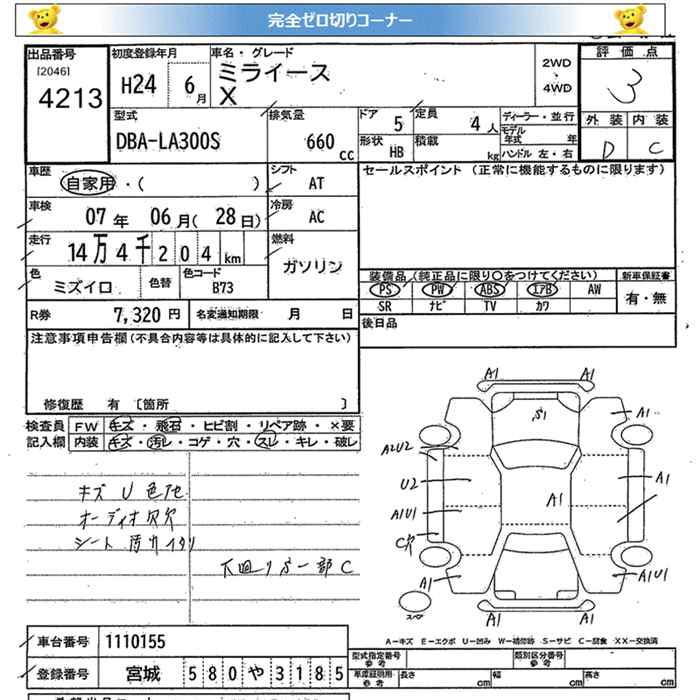 完全ゼロ切りコーナー
出品番号 初度登録年月 車名・グレード 評価点
[2046] 4213 H24 6月 ミライース X 2WD 4WD 3
外装 内装
D C
型式 排気量 ドア 5 定員 4人 ディーラー・並行
DBA-LA300S 660cc 形状 HB 積載 kg モデル年式 年
ハンドル 左・右
車歴 自家用・( ) シフト AT セールスポイント (正常に機能するものに限ります)
車検 07年 06月(28日) 冷房 AC
走行 14万4千204km 燃料 ガソリン
色 ミズイロ 色替 色コード B73
装備品(純正品に限り〇をつけてください) 新車保証書
PS PW ABS エアB AW 有・無
SR ナビ TV カワ
R券 7,320円 名変通知期限 月 日 後日品
注意事項申告欄(不具合内容等は具体的に記入して下さい)
修復歴 有 [箇所 ]
検査員記入欄 FW キズ・飛石・ヒビ割・リペア跡・×要
内装 キズ・汚レ・コゲ・穴・スレ・キレ・破レ
キズ U 色地
オーディオ欠欠
シート汚れ
下回りS一部C
A1 A1
S1 A1
A2U2
U2 A1 A1
A1U1
C穴
A1 A1U1
スペア
A1 A1
A-キズ E-エクボ U-凹み W-補修跡 S-サビ C-腐食 XX-交換済
車台番号 1110155
型式指定番号 参考 類別区分番号 参考
登録番号 宮城 580や3185
車庫証明用 参考 長さ cm 幅 cm 高さ cm